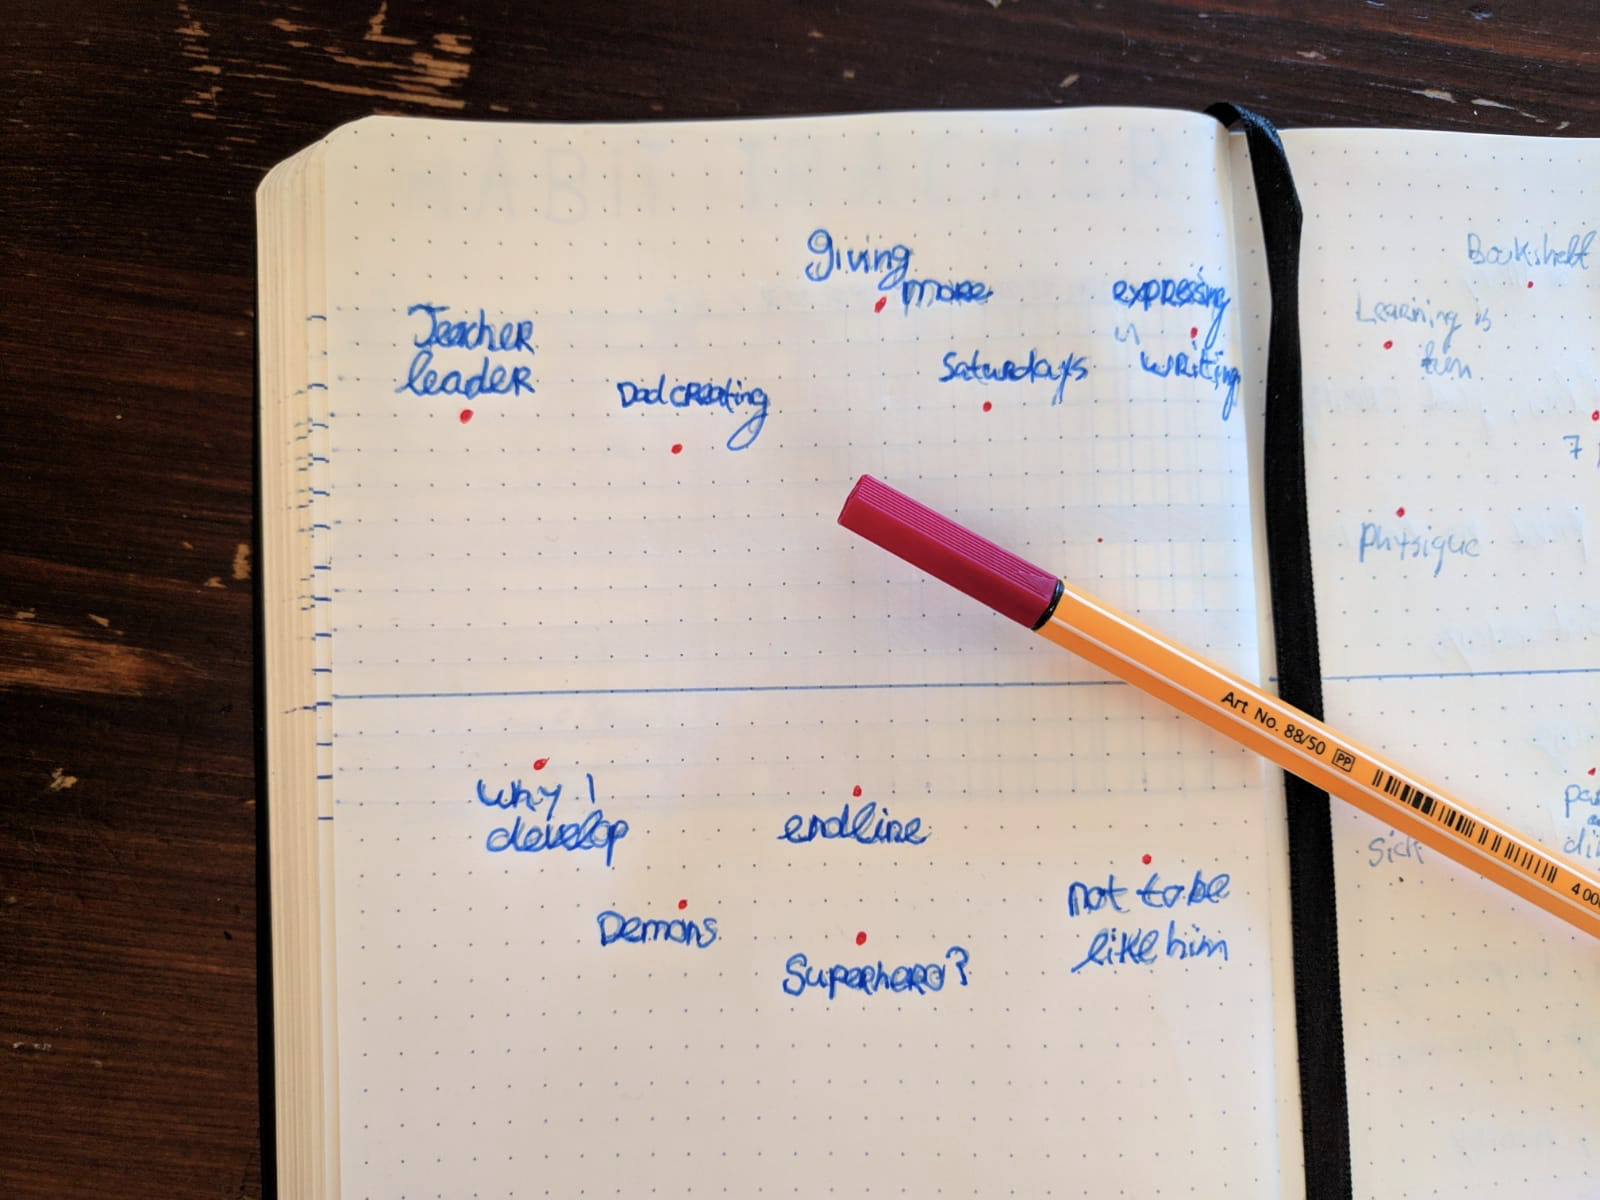 HABIT TRACKER
giving
more
expressing
in
writing
Teacher
leader
Dad creating
Saturdays
why I
develop
endline
Demons
Superhero?
not to be
like him
Art No. 88/50 PP
Bookshelf
Learning is
fun
7
physique
sick